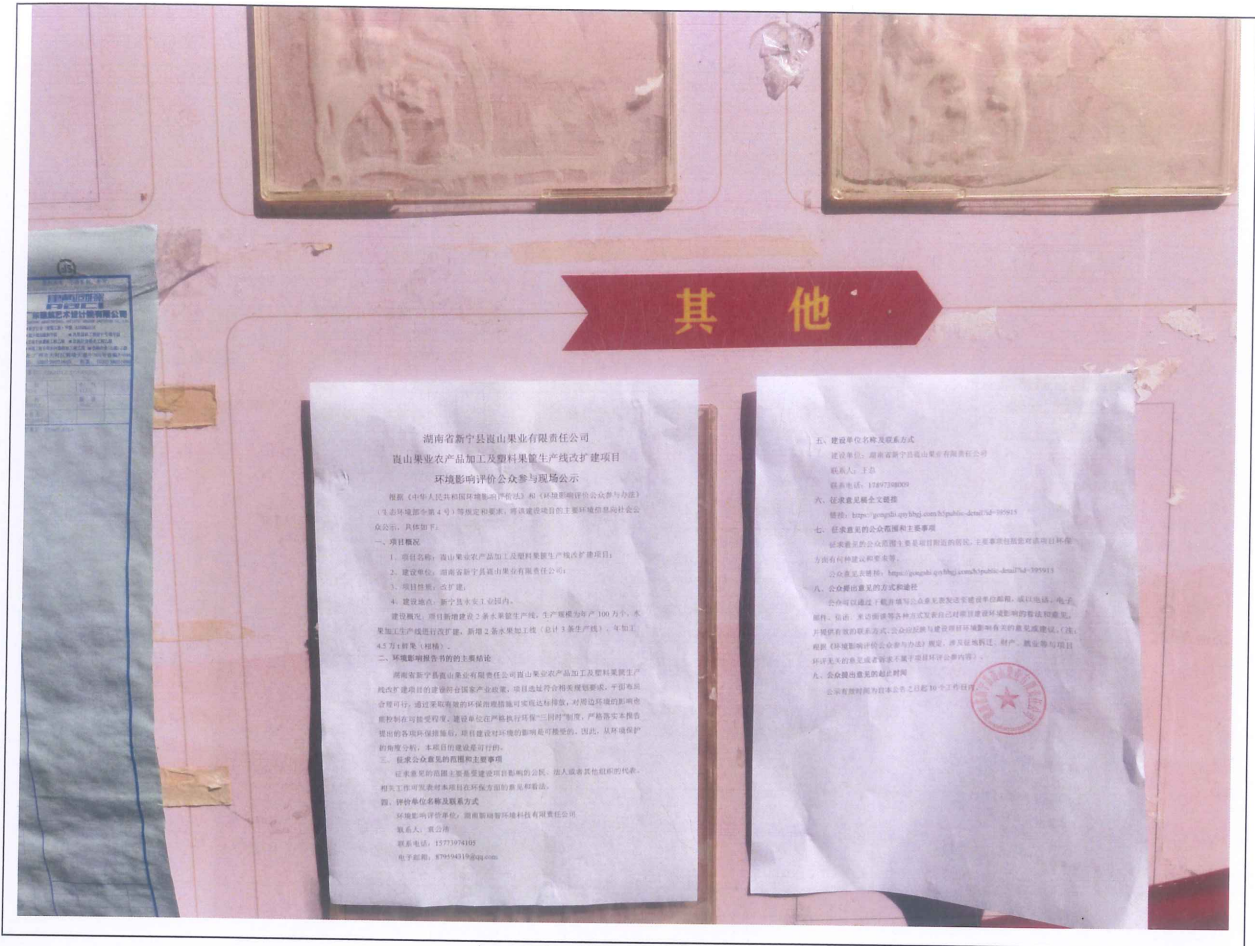 其 他
湖南省新宁县崀山果业有限责任公司
崀山果业农产品加工及塑料果筐生产线改扩建项目
环境影响评价公众参与现场公示
根据《中华人民共和国环境影响评价法》和《环境影响评价公众参与办法》
(生态环境部令第 4 号)等规定和要求,将该建设项目的主要环境信息向社会公
众公示,具体如下:
一、项目概况
1、项目名称:崀山果业农产品加工及塑料果筐生产线改扩建项目;
2、建设单位:湖南省新宁县崀山果业有限责任公司;
3、项目性质:改扩建;
4、建设地点:新宁县水东工业园内。
建设概况:项目新增建设 2 条水果筐生产线,生产规模为年产 100 万个,水
果加工生产线进行改扩建,新增 2 条水果加工线(总计 3 条生产线),年加工
4.5 万 t 鲜果(柑橘)。
二、环境影响报告书的的主要结论
湖南省新宁县崀山果业有限责任公司崀山果业农产品加工及塑料果筐生产
线改扩建项目的建设符合国家产业政策,项目选址符合相关规划要求,平面布局
合理可行,通过采取有效的环保治理措施可实现达标排放,对周边环境的影响也
能控制在可接受程度。建设单位在严格执行环保“三同时”制度,严格落实本报告
提出的各项环保措施后,项目建设对环境的影响是可接受的。因此,从环境保护
的角度分析,本项目的建设是可行的。
三、征求公众意见的范围和主要事项
征求意见的范围主要是受建设项目影响的公民、法人或者其他组织的代表,
相关工作可发表对本项目在环保方面的意见和看法。
四、评价单位名称及联系方式
环境影响评价单位:湖南 环境科技有限责任公司
联系人:
联系电话:15773974105
电子邮箱:879594319@qq.com
五、建设单位名称及联系方式
建设单位:湖南省新宁县崀山果业有限责任公司
联系人:
联系电话:15897398009
六、征求意见稿全文链接
链接:https://gongshi.qsyhbgj.com/h5public-detail?id=395915
七、征求意见的公众范围和主要事项
征求意见的公众范围主要是项目附近的居民,主要事项包括您对该项目环保
方面有何种建议和要求等。
公众意见表链接:https://gongshi.qsyhbgj.com/h5public-detail?id=395915
八、公众提出意见的方式和途径
公众可以通过下载并填写公众意见表发送至建设单位邮箱,或以电话、电子
邮件、信函、来访面谈等各种方式发表自己对项目建设环境影响的看法和意见,
并提供有效的联系方式。公众应反映与建设项目环境影响有关的意见或建议。(注:
根据《环境影响评价公众参与办法》规定,涉及征地拆迁、财产、就业等与项目
环评无关的意见或者诉求不属于项目环评公参内容)。
九、公众提出意见的起止时间
公示有效时间为自本公告之日起 10 个工作日内